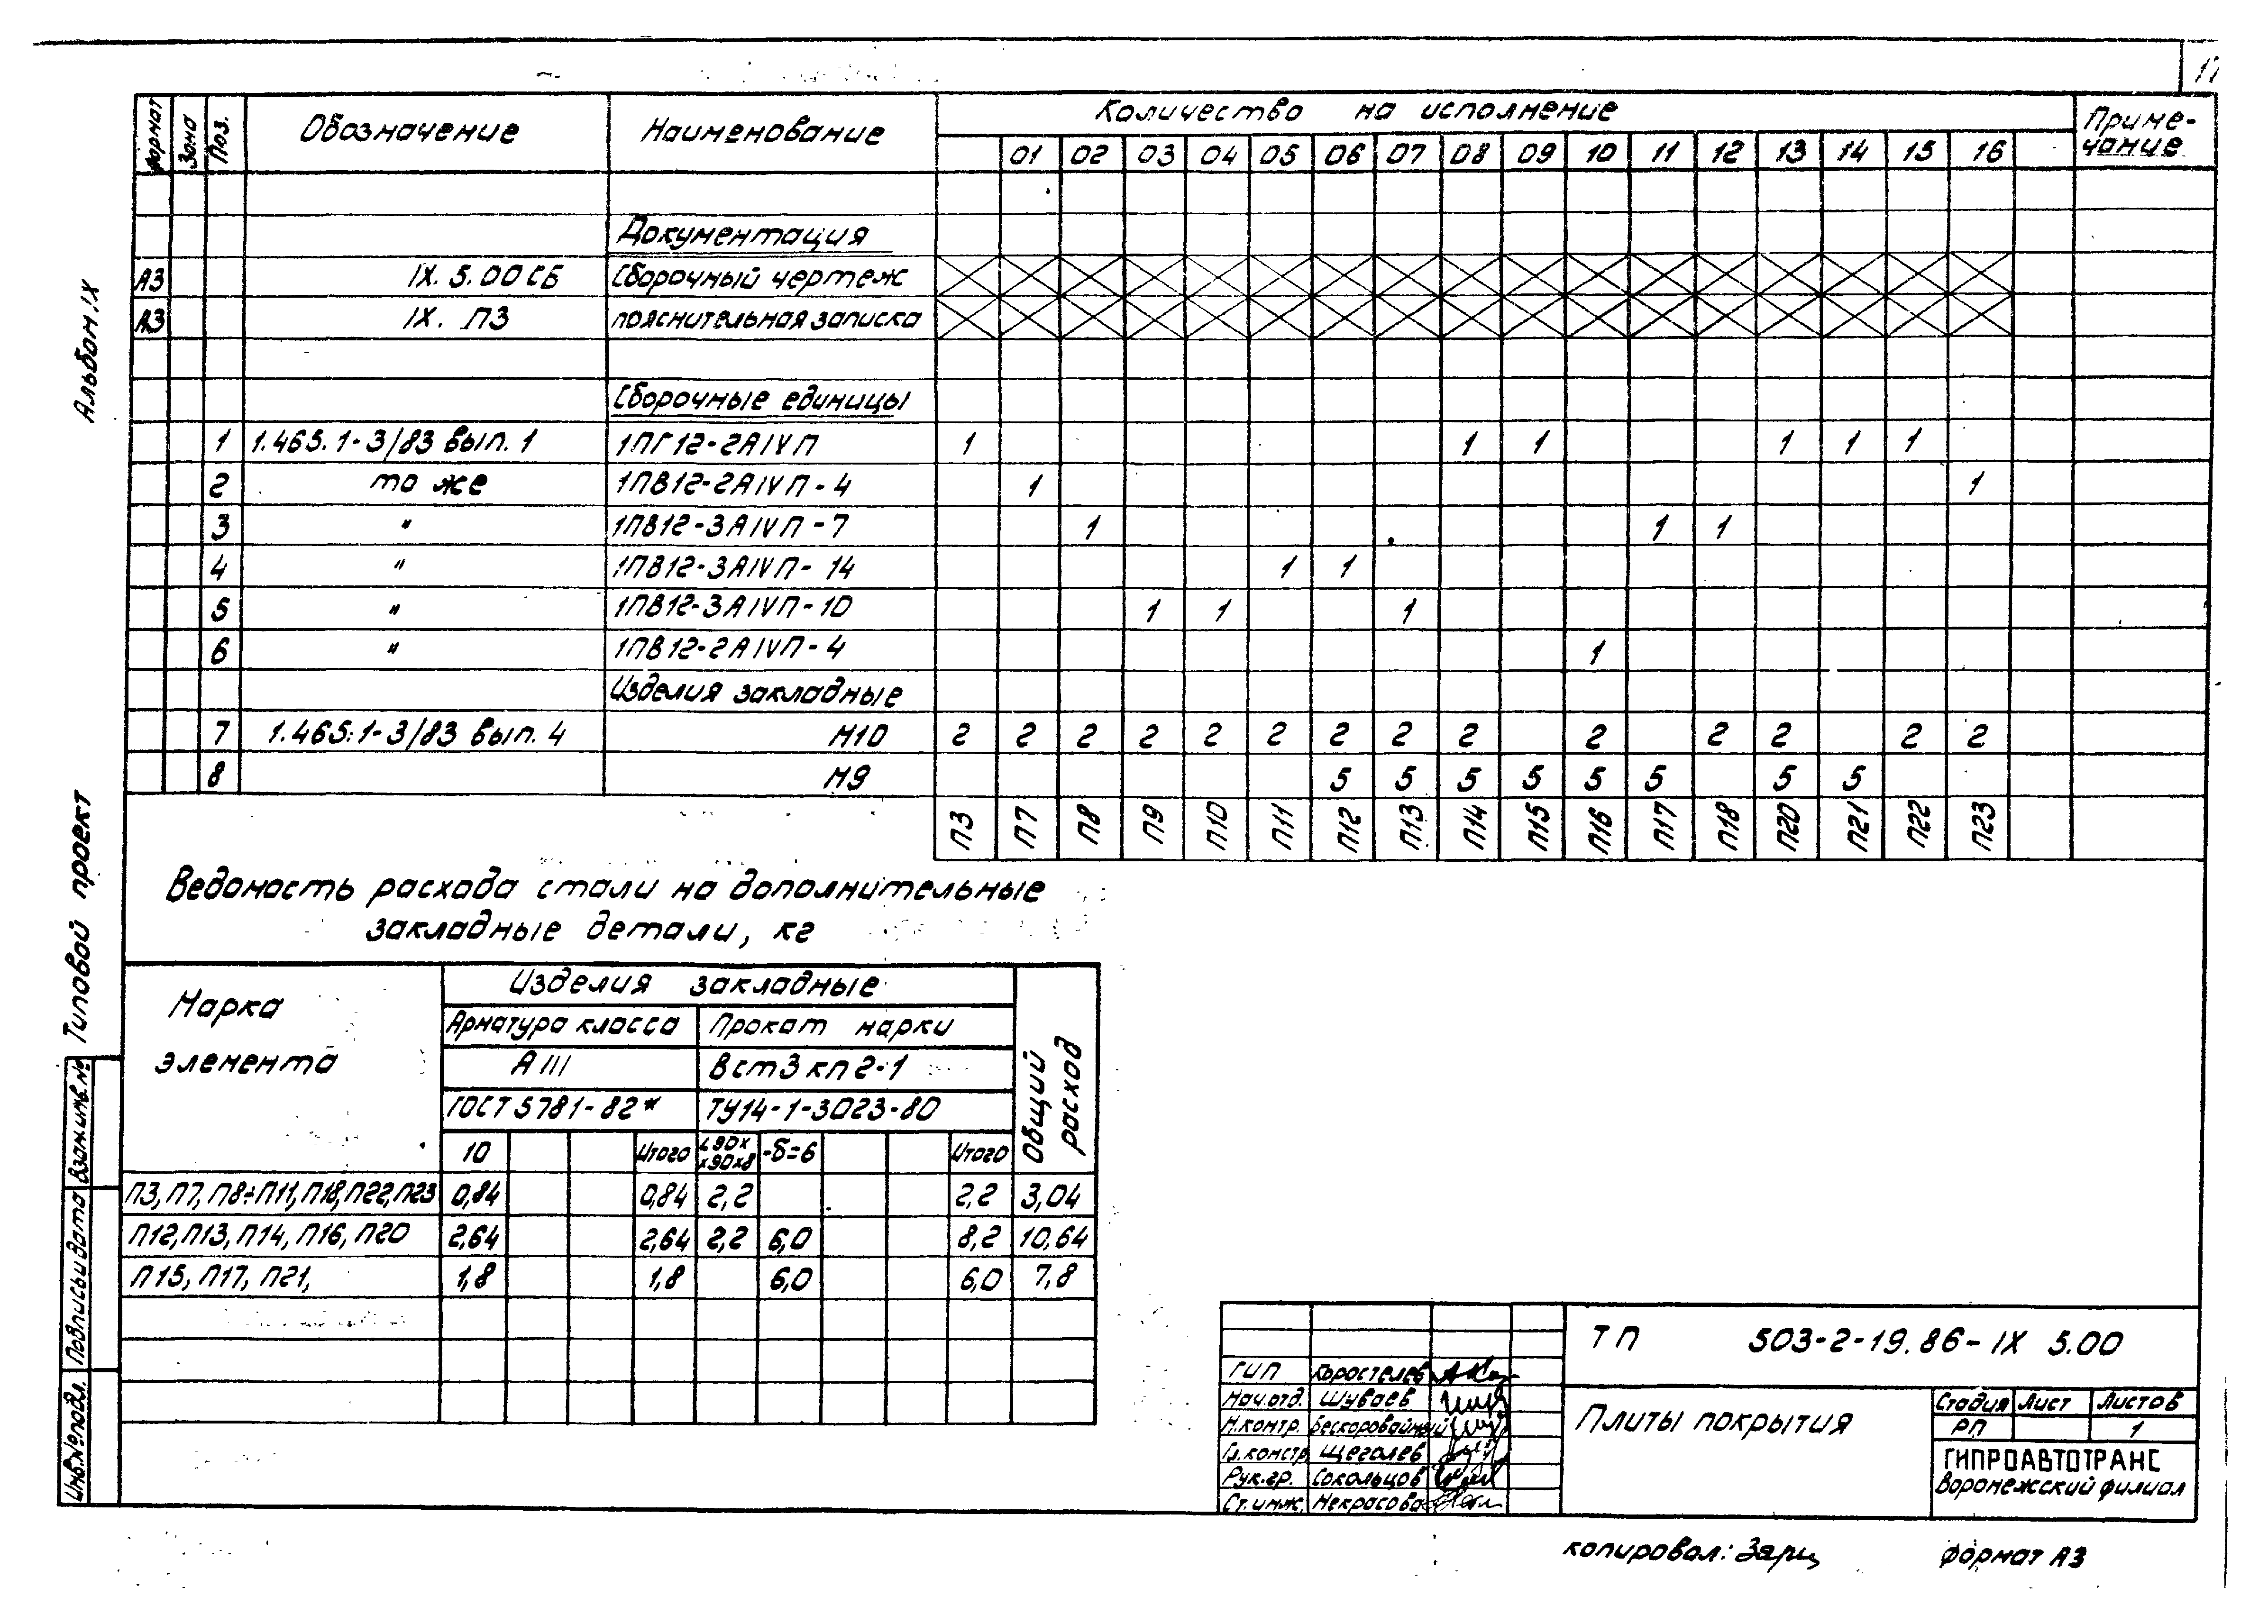 17
Формат Зона Поз. Обозначение Наименование Количество на исполнение Приме-
чание
01 02 03 04 05 06 07 08 09 10 11 12 13 14 15 16
Документация
А3 IX. 5.00 СБ Сборочный чертеж
А3 IX. ПЗ пояснительная записка
Сборочные единицы
1 1.465.1-3/83 вып. 1 1ПГ12-2АIVП 1 1 1 1 1 1
2 то же 1ПВ12-2АIVП-4 1 1
3 " 1ПВ12-3АIVП-7 1 1 1
4 " 1ПВ12-3АIVП-14 1 1
5 " 1ПВ12-3АIVП-10 1 1 1
6 " 1ПВ12-2АIVП-4 1
Изделия закладные
7 1.465.1-3/83 вып. 4 М10 2 2 2 2 2 2 2 2 2 2 2 2 2 2
8 М9 5 5 5 5 5 5 5 5
П3 П7 П8 П9 П10 П11 П12 П13 П14 П15 П16 П17 П18 П20 П21 П22 П23
Ведомость расхода стали на дополнительные
закладные детали, кг
Марка
элемента
Изделия закладные
Общий
расход
Арматура класса Прокат марки
А III Вст3кп2-1
ГОСТ 5781-82* ТУ14-1-3023-80
10 Итого L90х
х90х8 -δ=6 Итого
П3, П7, П8÷П11, П18, П22, П23 0,84 0,84 2,2 2,2 3,04
П12, П13, П14, П16, П20 2,64 2,64 2,2 6,0 8,2 10,64
П15, П17, П21, 1,8 1,8 6,0 6,0 7,8
Альбом IX
Типовой проект
Взам.инв.№
Подпись и дата
Инв.№подл.
ТП 503-2-19.86-IX 5.00
ГИП Коростелев
Нач.отд. Шуваев
Н.контр. Бескоровайный
Гл.констр. Щеголев
Рук.гр. Сокольцов
Ст.инж. Некрасова
Плиты покрытия
Стадия Лист Листов
РП 1
ГИПРОАВТОТРАНС
Воронежский филиал
копировал: Зарц формат А3